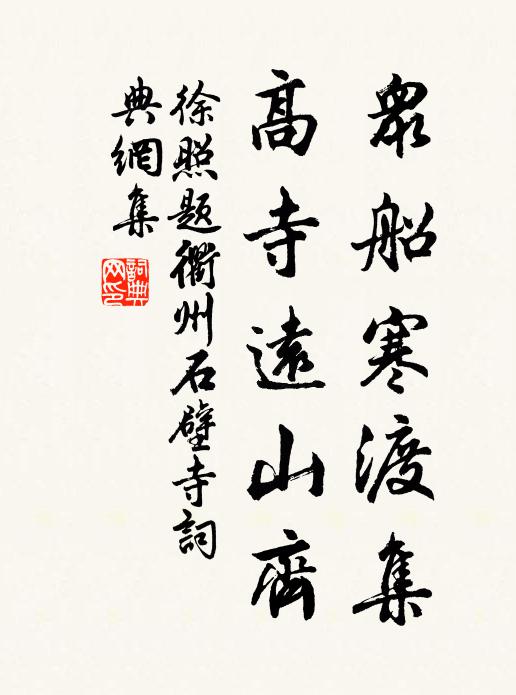 眾船寒渡集
高寺遠山齊
徐照題衢州石壁寺詞
典網集
詞典
网印